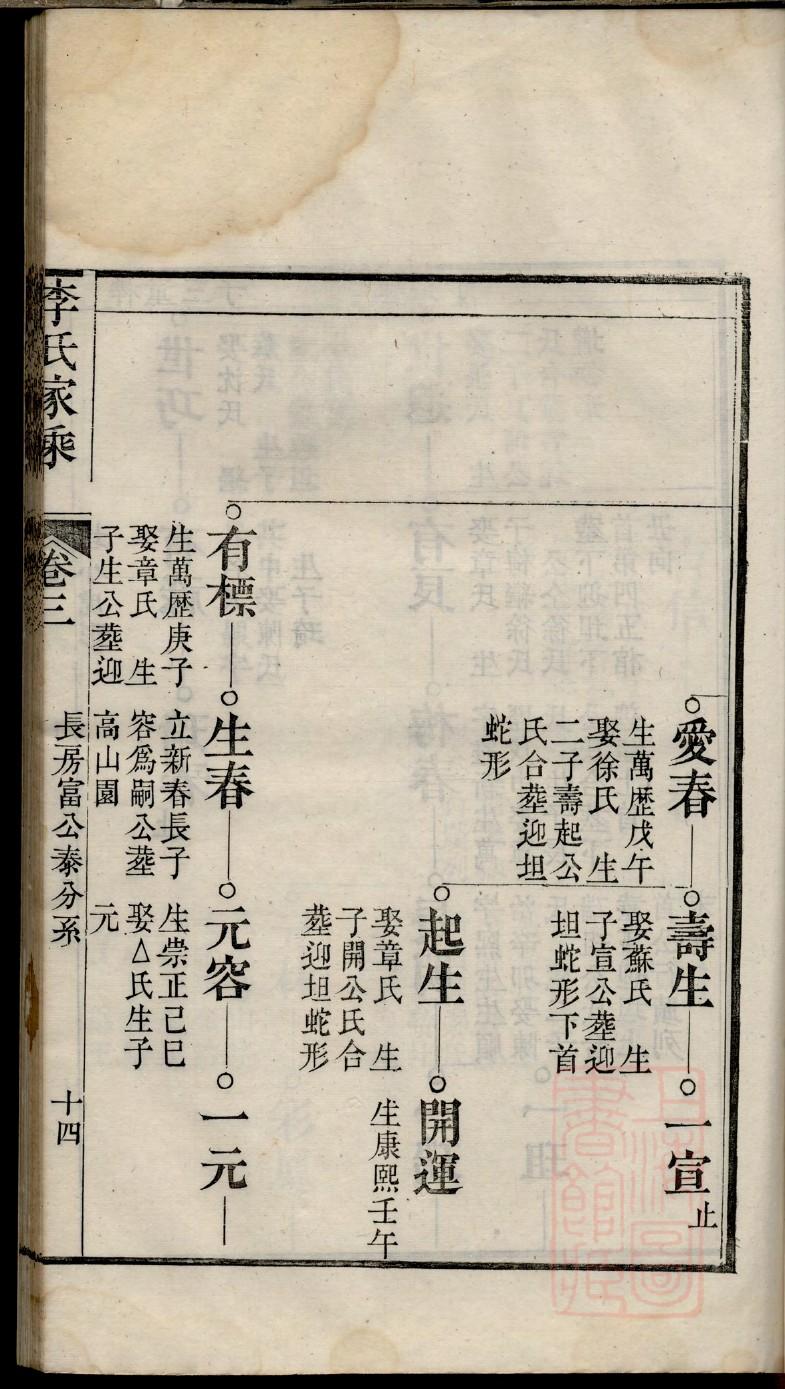 愛春
生萬歴戊午
娶徐氏　生
二子壽起公
氏合塟迎坦
蛇形
壽生
娶蘇氏　生
子宣公塟迎
坦蛇形下首
一宣止
起生
娶章氏　生
子開公氏合
塟迎坦蛇形
開運
生康熙壬午
有標
生萬歴庚子
娶章氏　生
子生公塟迎
生春
立新春長子
容爲嗣公塟
高山園
元容
生崇正己巳
娶△氏生子
元
一元
李氏家乘
卷三
長房富公泰分系
十四